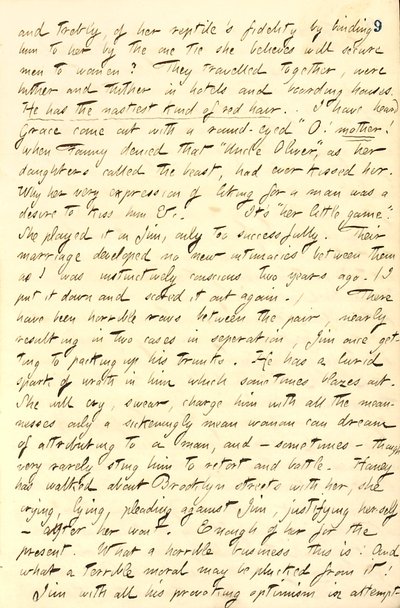 9
and trebly, of her reptile's fidelity by binding
him to her by the one tie she believes will secure
men to women? They travelled together, were
hither and thither in hotels and boarding houses.
He has the nastiest kind of red hair... I have heard
Grace come out with a round-eyed "O! mother!
when Fanny denied that "Uncle Oliver", as her
daughters called the beast, had ever kissed her.
Why her very expression of liking for a man was a
desire to kiss him &c. It's "her little game".
She played it on Jim, only too successfully. Their
marriage developed no new intimacies between them
as I was instinctively conscious two years ago. (I
put it down and scored it out again.) There
have been horrible rows between the pair, nearly
resulting in two cases in seperation, Jim once get-
ting to packing up his trunks. He has a lurid
spark of wrath in him which sometimes blazes out.
She will cry, swear, charge him with all the mean-
nesses only a sickeningly mean woman can dream
of attributing to a man, and — sometimes — though
very rarely sting him to retort and battle. Haney
has walked about Brooklyn streets with her, she
crying, lying, pleading against Jim, justifying herself
— after her wont. Enough of her for the
present. What a horrible business this is! And
what a terrible moral may be plucked from it!
Jim with all his provoking optimism in attempt-